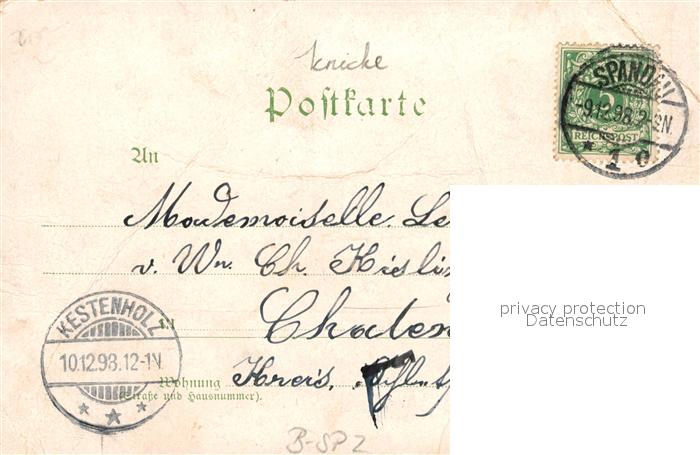 knicke
Postkarte
SPANDAU
-9.12.98.8-9N.
* 1 c
5
REICHSPOST
An
Mademoiselle Le
v. Wn. Ch. Kieli
Chaten
KESTENHOLZ
10.12.98.12-1N.
Kreis
Wohnung
(Straße und Hausnummer).
privacy protection
Datenschutz
B-SP 2